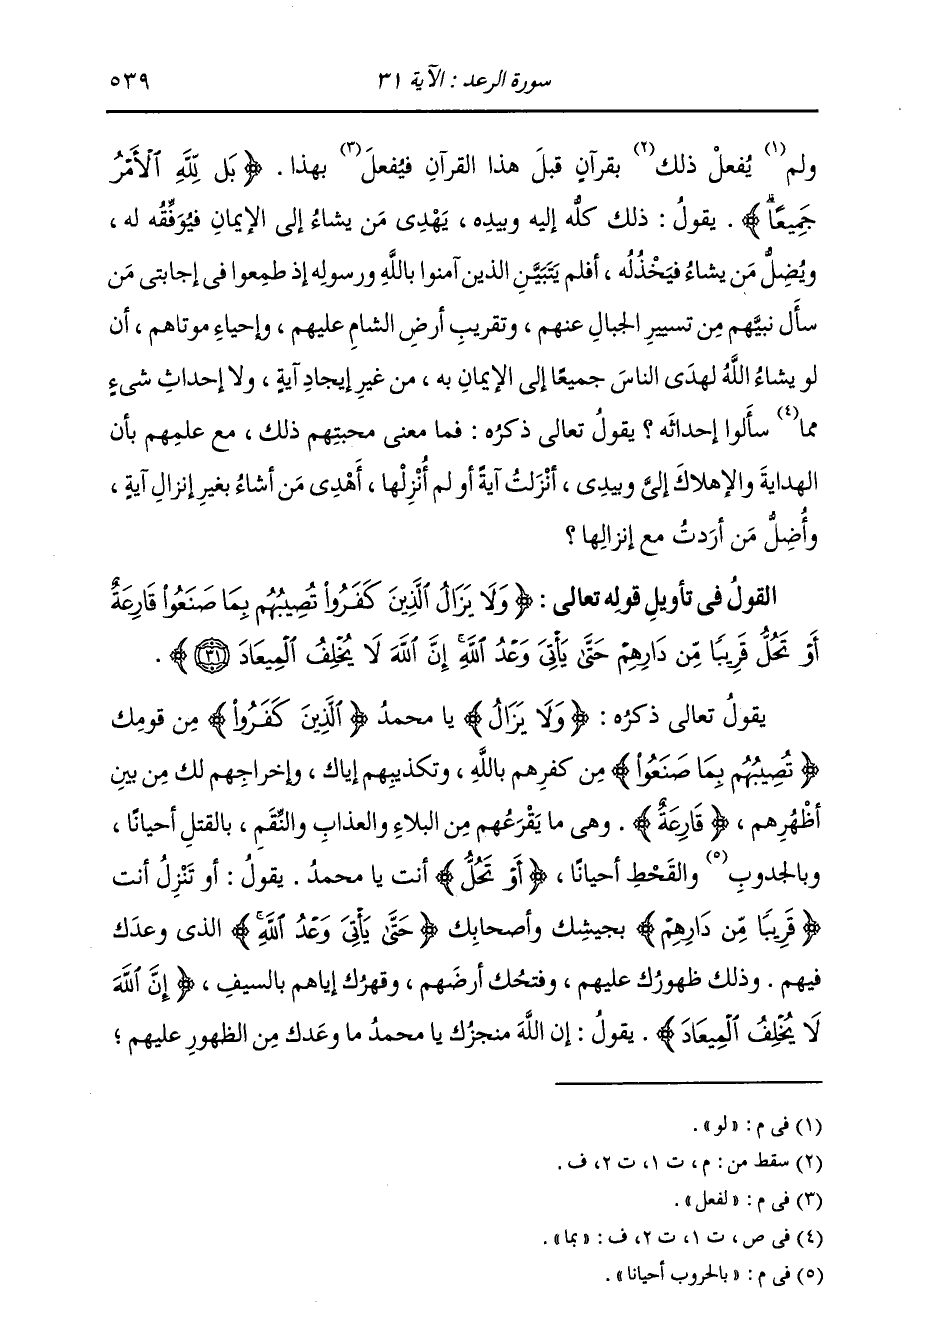 سورة الرعد : الآية ٣١ ٥٣٩
ولم(١) يُفعلْ ذلك(٢) بقرآنٍ قبلَ هذا القرآنِ فيُفعلَ(٣) بهذا . ﴿ بَل لِّلَّهِ ٱلْأَمْرُ
جَمِيعًاۗ ﴾ . يقولُ : ذلك كلُّه إليه وبيدِه ، يَهْدِى مَن يشاءُ إلى الإيمانِ فيُوَفِّقُه له ،
ويُضِلُّ مَن يشاءُ فيَخْذُلُه ، أفلم يَتَبَيَّنِ الذين آمنوا باللَّهِ ورسولِه إذ طمِعوا فى إجابتى مَن
سأَل نبيَّهم مِن تسييرِ الجبالِ عنهم ، وتقريبِ أرضِ الشامِ عليهم ، وإحياءِ موتاهم ، أن
لو يشاءُ اللَّهُ لهدَى الناسَ جميعًا إلى الإيمانِ به ، من غيرِ إيجادِ آيةٍ ، ولا إحداثِ شىءٍ
مما(٤) سأَلوا إحداثَه ؟ يقولُ تعالى ذكرُه : فما معنى محبتِهم ذلك ، مع علمِهم بأن
الهدايةَ والإهلاكَ إلىَّ وبيدِى ، أنْزَلتُ آيةً أو لم أُنْزِلْها ، أَهْدِى مَن أشاءُ بغيرِ إنزالِ آيةٍ ،
وأُضِلُّ مَن أرَدتُ مع إنزالِها ؟
القولُ فى تأويلِ قولِه تعالى : ﴿ وَلَا يَزَالُ ٱلَّذِينَ كَفَرُوا۟ تُصِيبُهُم بِمَا صَنَعُوا۟ قَارِعَةٌ
أَوْ تَحُلُّ قَرِيبًا مِّن دَارِهِمْ حَتَّىٰ يَأْتِىَ وَعْدُ ٱللَّهِۚ إِنَّ ٱللَّهَ لَا يُخْلِفُ ٱلْمِيعَادَ ٣١ ﴾ .
يقولُ تعالى ذكرُه : ﴿ وَلَا يَزَالُ ﴾ يا محمدُ ﴿ ٱلَّذِينَ كَفَرُوا۟ ﴾ مِن قومِك
﴿ تُصِيبُهُم بِمَا صَنَعُوا۟ ﴾ مِن كفرِهم باللَّهِ ، وتكذيبِهم إياك ، وإخراجِهم لك مِن بينِ
أظْهُرِهم ، ﴿ قَارِعَةٌ ﴾ . وهى ما يَقْرَعُهم مِن البلاءِ والعذابِ والنِّقَمِ ، بالقتلِ أحيانًا ،
وبالجدوبِ(٥) والقَحْطِ أحيانًا ، ﴿ أَوْ تَحُلُّ ﴾ أنت يا محمدُ . يقولُ : أو تَنْزِلُ أنت
﴿ قَرِيبًا مِّن دَارِهِمْ ﴾ بجيشِك وأصحابِك ﴿ حَتَّىٰ يَأْتِىَ وَعْدُ ٱللَّهِۚ ﴾ الذى وعدَك
فيهم . وذلك ظهورُك عليهم ، وفتحُك أرضَهم ، وقهرُك إياهم بالسيفِ ، ﴿ إِنَّ ٱللَّهَ
لَا يُخْلِفُ ٱلْمِيعَادَ ﴾ . يقولُ : إن اللَّهَ منجزُك يا محمدُ ما وعَدك مِن الظهورِ عليهم ؛
(١) فى م : «لو» .
(٢) سقط من : م ، ت ١ ، ت ٢ ، ف .
(٣) فى م : «لفعل» .
(٤) فى ص ، ت ١ ، ت ٢ ، ف : «بما» .
(٥) فى م : «بالحروب أحيانا» .